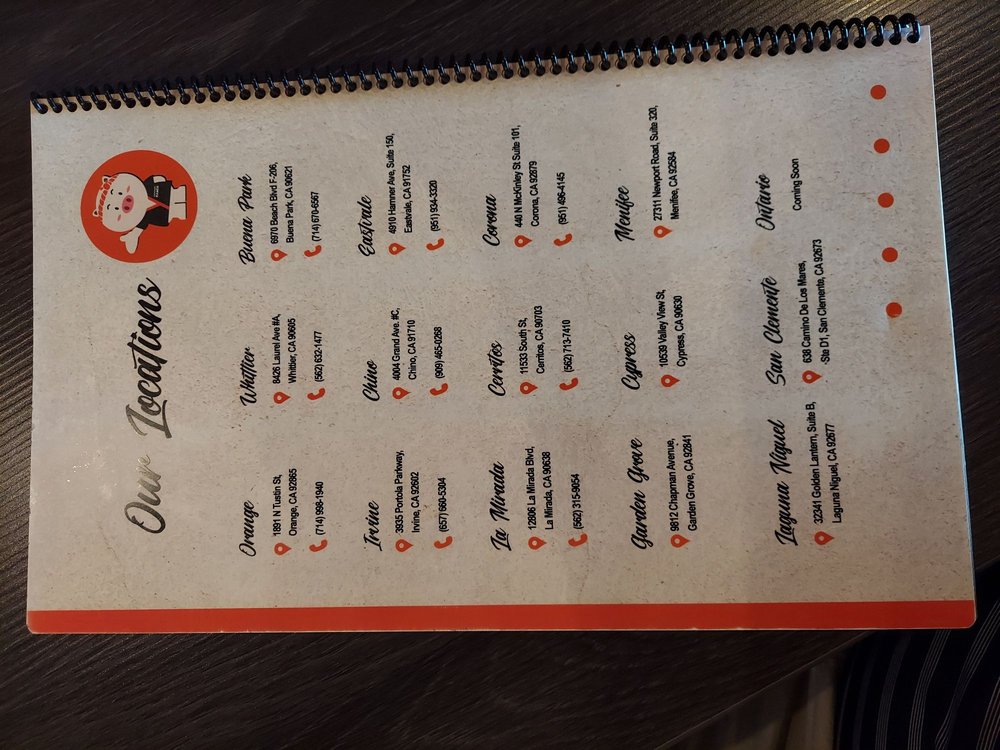 Our Locations
Orange
1891 N Tustin St,
Orange, CA 92865
(714) 998-1940
Whittier
8426 Laurel Ave #A,
Whittier, CA 90605
(562) 632-1477
Buena Park
6970 Beach Blvd F-206,
Buena Park, CA 90621
(714) 670-6567
Irvine
3935 Portola Parkway,
Irvine, CA 92602
(657) 660-5304
Chino
4004 Grand Ave. #C,
Chino, CA 91710
(909) 465-0268
Eastvale
4910 Hamner Ave, Suite 150,
Eastvale, CA 91752
(951) 934-3320
La Mirada
12806 La Mirada Blvd,
La Mirada, CA 90638
(562) 315-5654
Cerritos
11533 South St,
Cerritos, CA 90703
(562) 713-7410
Corona
440 N McKinley St Suite 101,
Corona, CA 92879
(951) 496-4145
Garden Grove
9812 Chapman Avenue,
Garden Grove, CA 92841
Cypress
10539 Valley View St,
Cypress, CA 90630
Menifee
27311 Newport Road, Suite 320,
Menifee, CA 92584
Laguna Niguel
32341 Golden Lantern, Suite B,
Laguna Niguel, CA 92677
San Clemente
638 Camino De Los Mares,
Ste D1, San Clemente, CA 92673
Ontario
Coming Soon